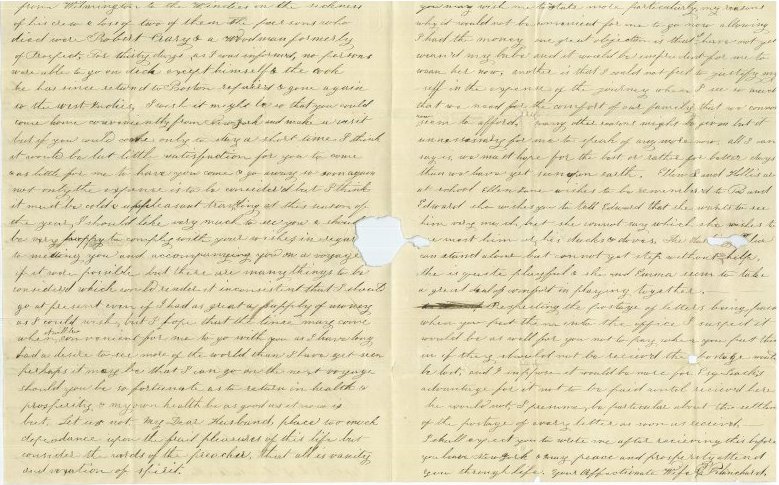 from Wilmington to the W Indies on the sickness
of his crew & loss of two of them the persons who
died were Robert Crary & a Woodman formerly
of Prospect. For thirty days, as I was informed, no persons
were able to go on deck except himself & the cook
he has since returned to Boston refused & gone again
to the west Indies, I wish it might be so that you could
come home conveniently from New York and make a visit
but if you could come only to stay a short time I think
it would be but little satisfaction for you to come
& as little for me to have you come & go away so soon again
not only the expense is to be considered but I think
it must be cold & unpleasant traveling at this season of
the year, I should like very much to see you & should
be very happy to comply with your wishes in regard
to meeting you and accompanying you on a voyage
if it were possible but there are many things to be
considered which would render it inconsistent that I should
go at present even if I had as great a supply of money
as I could wish, but I hope that the time may come
when it will be convenient for me to go with you as I have long
had a desire to see more of the world than I have yet seen
perhaps it may be that I can go on the next voyage
should you be so fortunate as to return in health &
prosperity & my own health be as good as it now is
but Let us not My Dear Husband place too much
dependance upon the fread pleasures of this life but
consider the words of the preacher, that all is vanity
and vexation of spirit.
you may wish me to state more particularly my reasons
why it would not be convenient for me to go now allowing
I had the money one great objection is that I have not yet
weaned my babe and it would be imprudent for me to
wean her now, another is that I could not feel to justify my
self in the expense of the journey when I see so much
that we need for the comfort of our family that we cannot
seem to afford, many other reasons might be given but it
unnecessary for me to speak of any more now, all I can
say is, we must hope for the best or rather for better days
than we have yet seen on earth. and Hollis are
at school Ellen Jane wishes to be remembered to Pa and
Edward she wishes you to tell Edward that she wants to see
him very much, but she cannot say which she wishes to
see most him or his ducks & doves, The
can stand alone but can not yet step without help,
she is quite playful & she and Emma seem to take
a great deal of comfort in playing together.
Respecting the postage of letters being paid
when you put them into the office I suspect it
would be as well for you not to pay when you put them
in if they should not be received the postage would
be lost, and I suppose it would be more for
advantage for it not to be paid until received here
he would not, I presume, be particular about the settling
of the postage of every letter as soon as received
I shall expect you to write me after receiving this before
you leave New York & may peace and prosperity attend
you through life. Your Affectionate Wife Blanchard